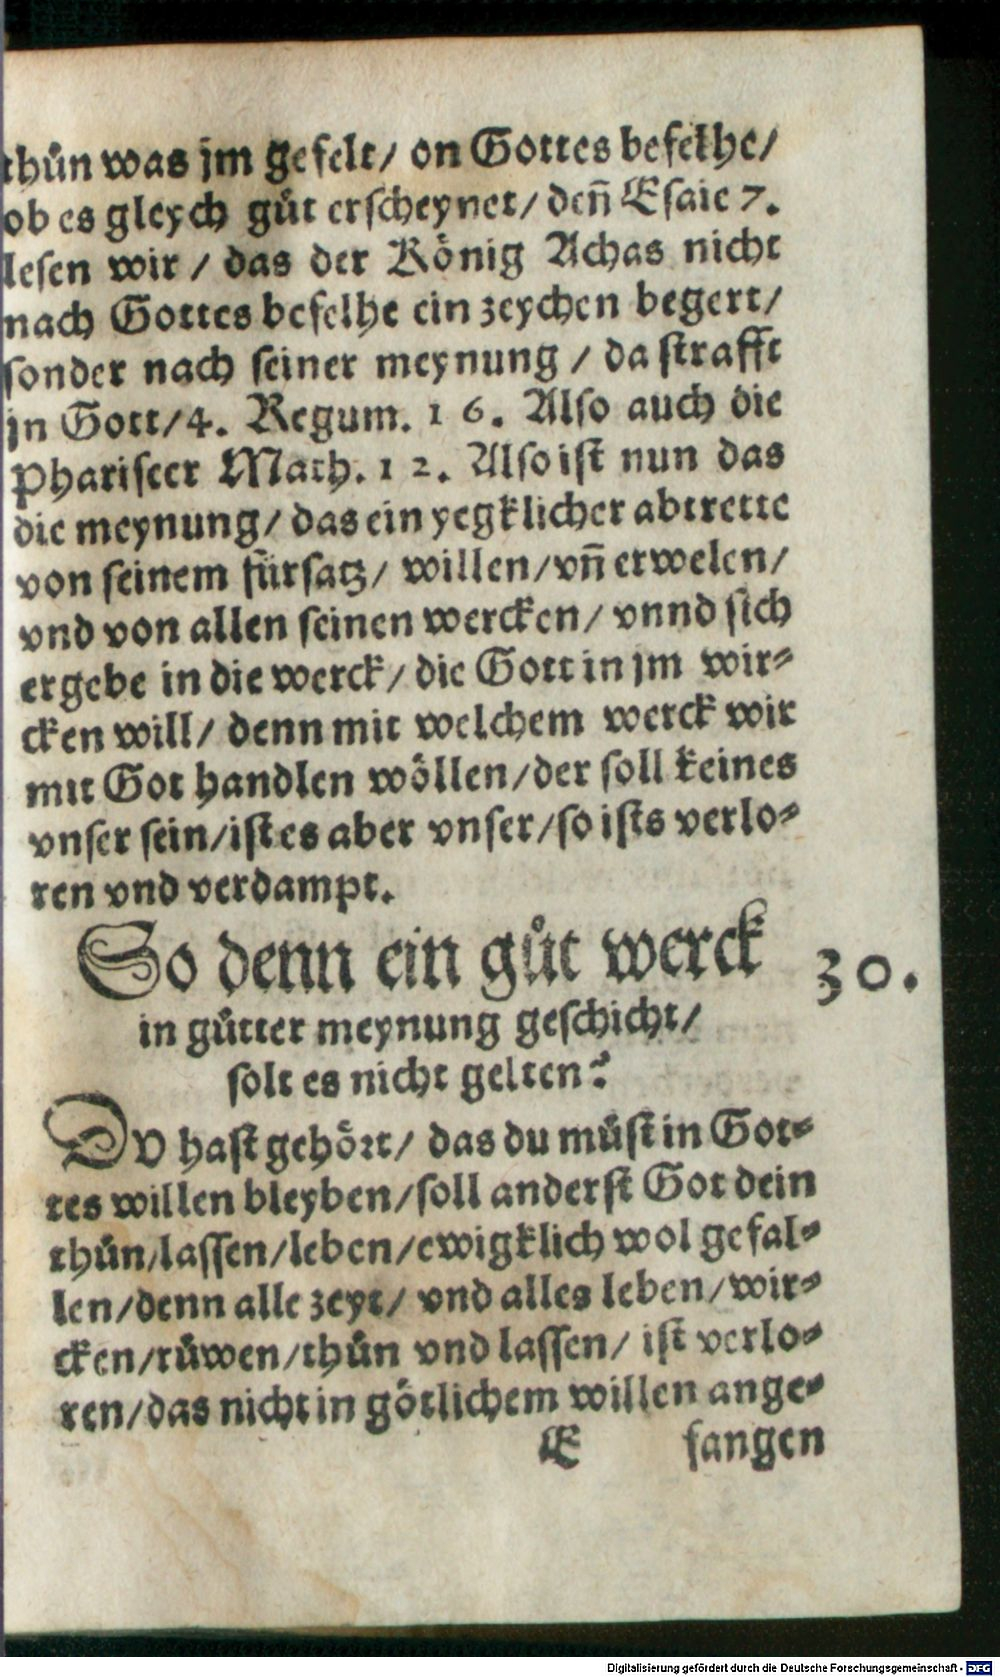 thůn was jm gefelt/ on Gottes befelhe/
ob es gleych gůt erscheynet/ deñ Esaie 7.
lesen wir / das der König Achas nicht
nach Gottes befelhe ein zeychen begert/
sonder nach seiner meynung / da strafft
jn Gott/4. Regum. 1 6. Also auch die
Phariseer Math. 1 2. Also ist nun das
die meynung/ das ein yegklicher abtrette
von seinem fürsatz/ willen/vñ erwelen/
vnd von allen seinen wercken/ vnnd sich
ergebe in die werck/ die Gott in jm wir⸗
cken will/ denn mit welchem werck wir
mit Got handlen wöllen/der soll keines
vnser sein/ist es aber vnser/so ists verlo⸗
ren vnd verdampt.
So denn ein gůt werck 30.
in gůtter meynung geschicht/
solt es nicht gelten?
DV hast gehört/ das du můst in Got⸗
tes willen bleyben/soll anderst Got dein
thůn/lassen/leben/ewigklich wol gefal⸗
len/denn alle zeyt/ vnd alles leben/wir⸗
cken/růwen/thůn vnd lassen/ ist verlo⸗
ren/das nicht in götlichem willen ange⸗
E fangen
Digitalisierung gefördert durch die Deutsche Forschungsgemeinschaft - DFG